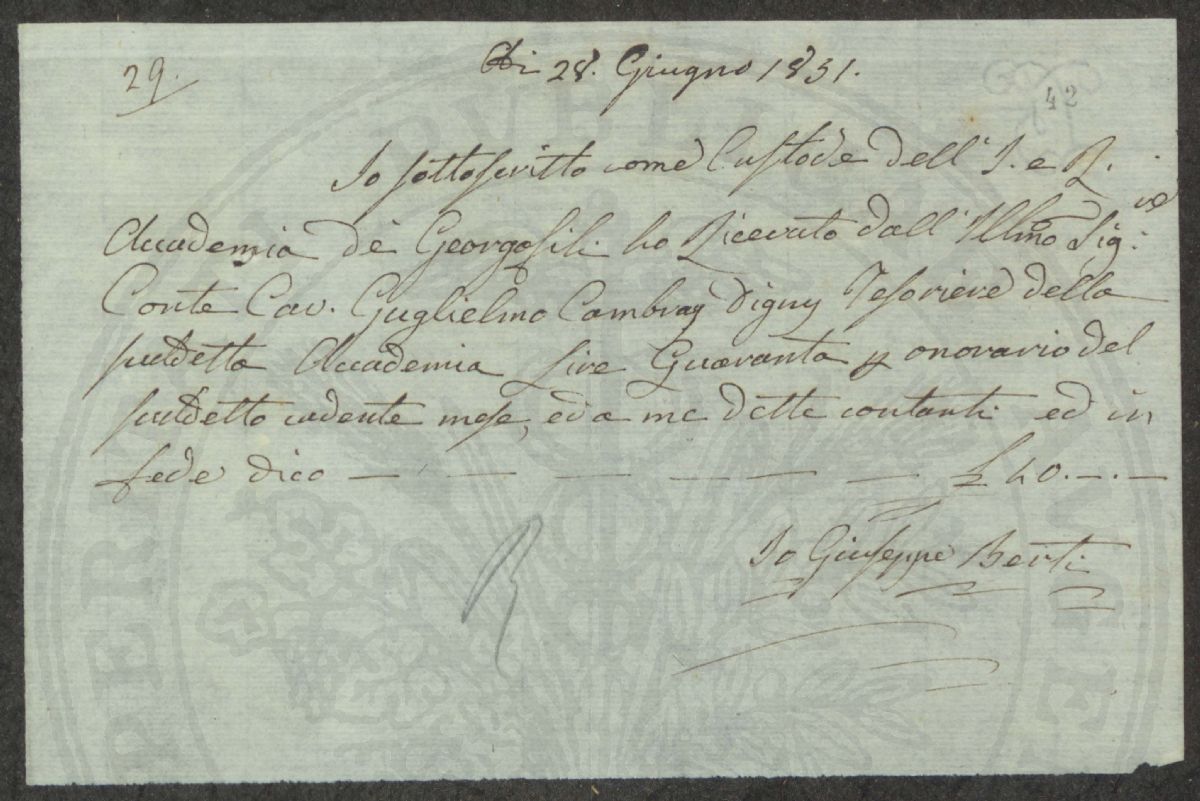 29.
Adì 28. Giugno 1831.
42
Io sottoscritto come Custode dell' I. e R.
Accademia de Georgofili ho Ricevuto dall' Illmo Sig:re
Conte Cav. Guglielmo Cambray Digny Tesoriere della
suddetta Accademia Lire Quaranta p onorario del
suddetto cadente mese, ed a me dette contanti ed in
fede dico — — — — — — £ 40. — . —
Io Giuseppe Berti